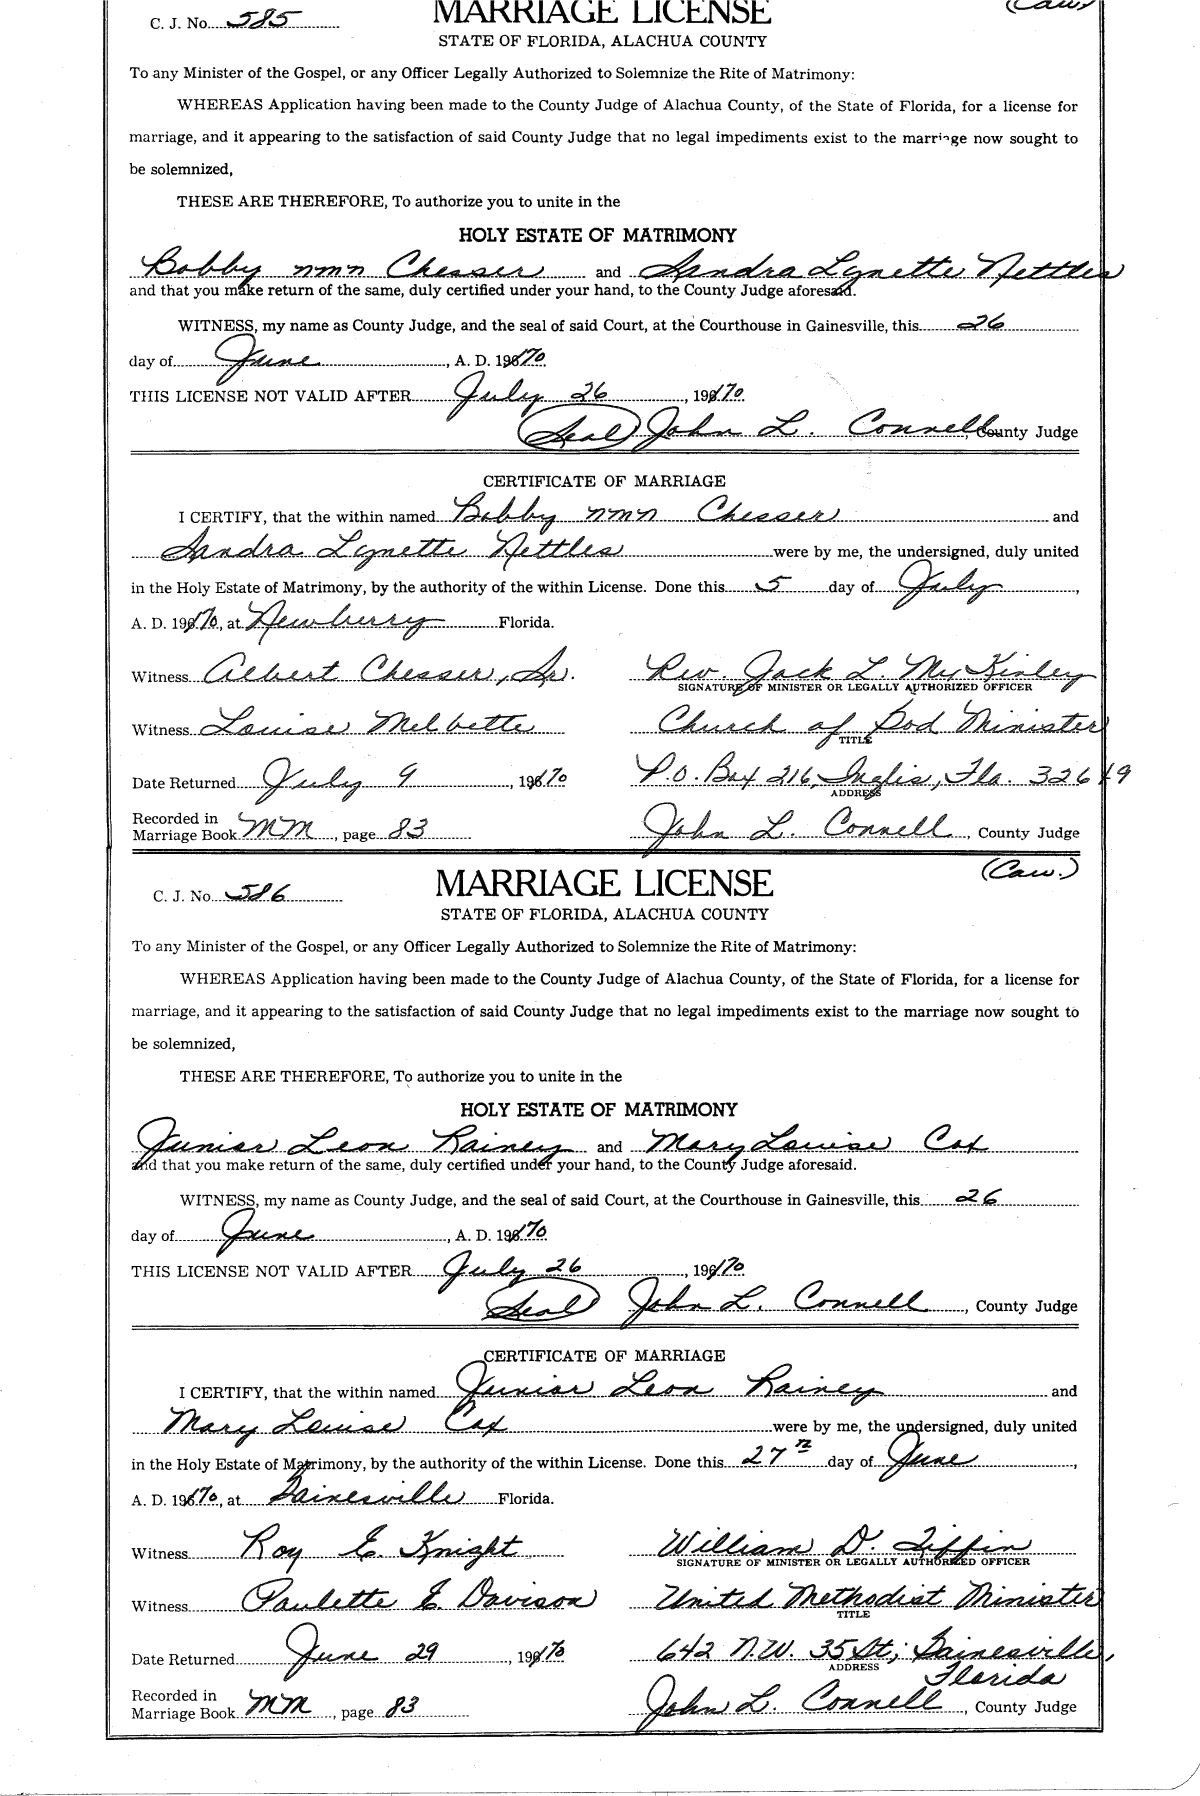 C. J. No. 585 MARRIAGE LICENSE (Caw.)
STATE OF FLORIDA, ALACHUA COUNTY
To any Minister of the Gospel, or any Officer Legally Authorized to Solemnize the Rite of Matrimony:
WHEREAS Application having been made to the County Judge of Alachua County, of the State of Florida, for a license for
marriage, and it appearing to the satisfaction of said County Judge that no legal impediments exist to the marriage now sought to
be solemnized,
THESE ARE THEREFORE, To authorize you to unite in the
HOLY ESTATE OF MATRIMONY
Bobby nmn Chesser and Sandra Lynette Nettles
and that you make return of the same, duly certified under your hand, to the County Judge aforesaid.
WITNESS, my name as County Judge, and the seal of said Court, at the Courthouse in Gainesville, this 26
day of June, A. D. 1970
THIS LICENSE NOT VALID AFTER July 26, 1970
(Seal) John L. Connell, County Judge
CERTIFICATE OF MARRIAGE
I CERTIFY, that the within named Bobby nmn Chesser and
Sandra Lynette Nettles were by me, the undersigned, duly united
in the Holy Estate of Matrimony, by the authority of the within License. Done this 5 day of July,
A. D. 1970, at Newberry Florida.
Witness Albert Chesser, Sr. Rev. Jack L. McKinley
SIGNATURE OF MINISTER OR LEGALLY AUTHORIZED OFFICER
Witness Louise Melbette Church of God Minister
TITLE
Date Returned July 9, 1970 P.O. Box 216, Inglis, Fla. 32649
ADDRESS
Recorded in
Marriage Book MM, page 83 John L. Connell, County Judge
C. J. No. 586 MARRIAGE LICENSE (Caw.)
STATE OF FLORIDA, ALACHUA COUNTY
To any Minister of the Gospel, or any Officer Legally Authorized to Solemnize the Rite of Matrimony:
WHEREAS Application having been made to the County Judge of Alachua County, of the State of Florida, for a license for
marriage, and it appearing to the satisfaction of said County Judge that no legal impediments exist to the marriage now sought to
be solemnized,
THESE ARE THEREFORE, To authorize you to unite in the
HOLY ESTATE OF MATRIMONY
Junior Leon Rainey and Mary Louise Cox
and that you make return of the same, duly certified under your hand, to the County Judge aforesaid.
WITNESS, my name as County Judge, and the seal of said Court, at the Courthouse in Gainesville, this 26
day of June, A. D. 1970
THIS LICENSE NOT VALID AFTER July 26, 1970
(Seal) John L. Connell, County Judge
CERTIFICATE OF MARRIAGE
I CERTIFY, that the within named Junior Leon Rainey and
Mary Louise Cox were by me, the undersigned, duly united
in the Holy Estate of Matrimony, by the authority of the within License. Done this 27th day of June,
A. D. 1970, at Gainesville Florida.
Witness Roy E. Knight William D. Tiffin
SIGNATURE OF MINISTER OR LEGALLY AUTHORIZED OFFICER
Witness Paulette E. Davison United Methodist Minister
TITLE
Date Returned June 29, 1970 642 N.W. 35 St., Gainesville,
ADDRESS Florida
Recorded in
Marriage Book MM, page 83 John L. Connell, County Judge